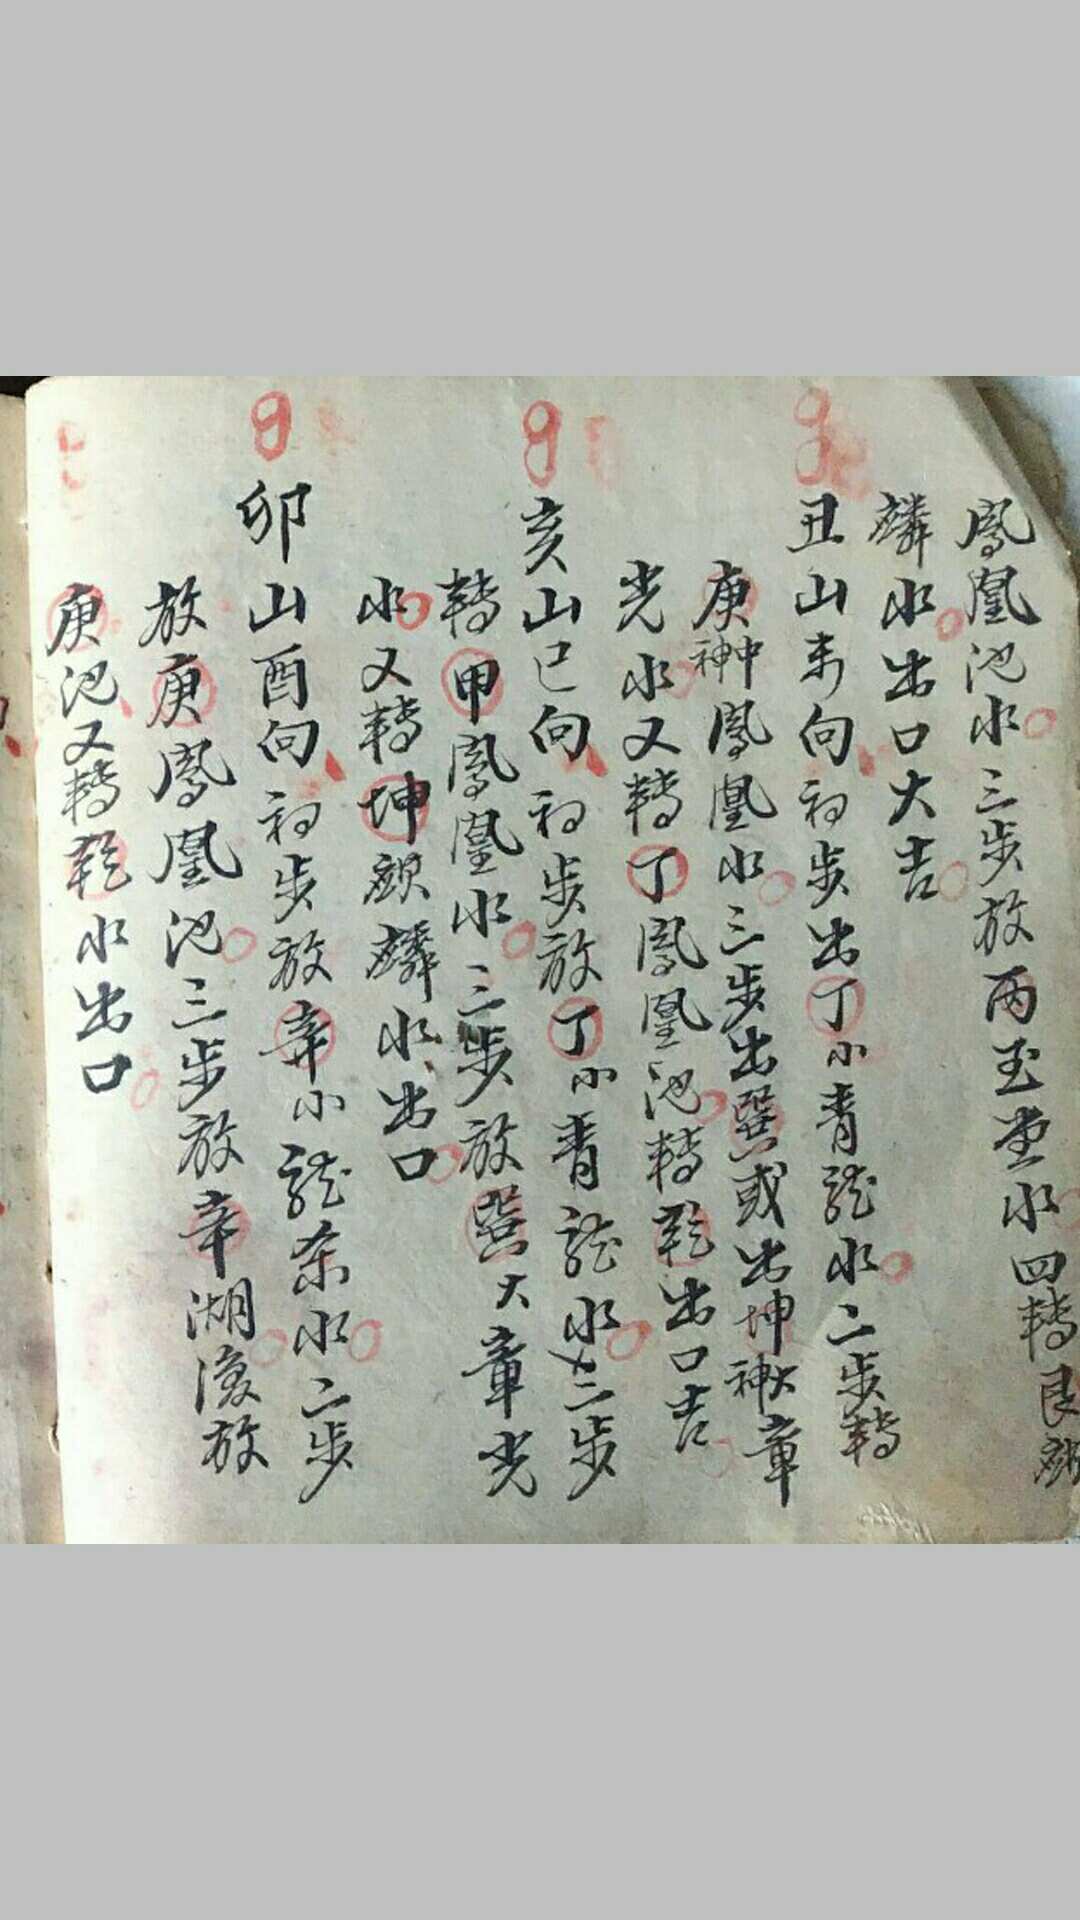 鳳凰池水三步放丙玉堂水四轉艮麒
麟水出口大吉
丑山未向初步出丁小青龍水二步轉
庚神中鳳凰水三步出巽或出坤神大章
光水又轉丁鳳凰池轉乾出口吉
亥山巳向初步放丁小青龍水二步
轉甲鳳凰水三步放巽大章光
水又轉坤麒麟水出口
卯山酉向初步放辛小龍水二步
放庚鳳凰池三步放辛湖後放
庚池又轉乾水出口